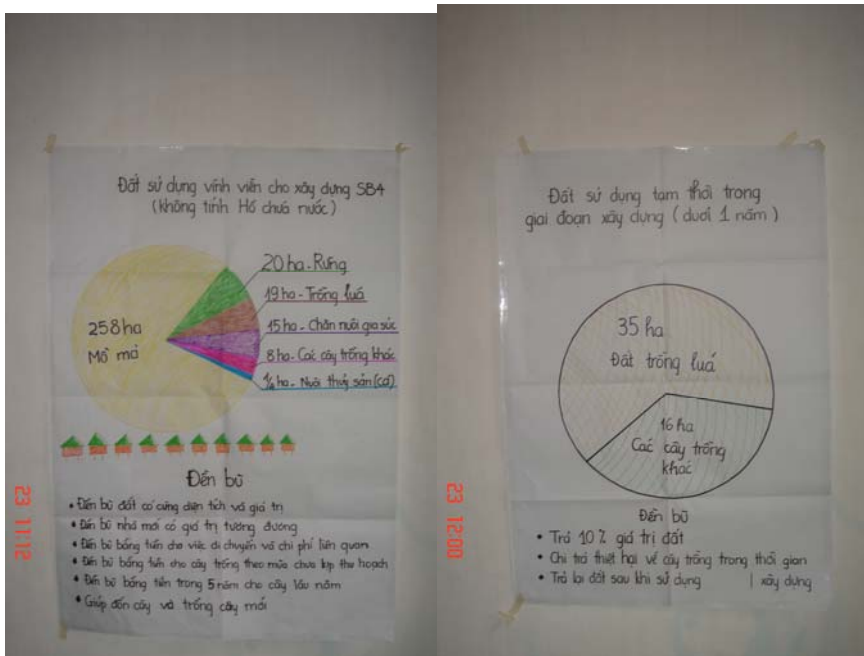 Đất sử dụng vĩnh viễn cho xây dựng SB4
(không tính Hồ chứa nước)
20 ha - Rừng
19 ha - Trồng luá
258 ha
Mồ mả
15 ha - Chăn nuôi gia súc
8 ha - Các cây trồng khác
¼ ha - Nuôi thủy sản (cá)
Đền bù
• Đền bù đất có cùng diện tích và giá trị
• Đền bù nhà mới có giá trị tương đương
• Đền bù bằng tiền cho việc di chuyển và chi phí liên quan
• Đền bù bằng tiền cho cây trồng theo mùa chưa kịp thu hoạch
• Đền bù bằng tiền trong 5 năm cho cây lâu năm
• Giúp đốn cây và trồng cây mới
23 11:12
Đất sử dụng tạm thời trong
giai đoạn xây dựng (dưới 1 năm)
35 ha
Đất trồng luá
16 ha
Các cây trồng
khác
Đền bù
• Trả 10% giá trị đất
• Chi trả thiệt hại về cây trồng trong thời gian
• Trả lại đất sau khi sử dụng | xây dựng
23 12:00